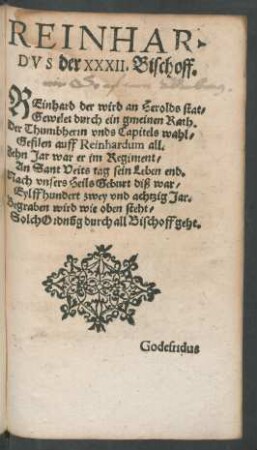 REINHAR-
DVS der XXXII. Bischoff.
REinhard der wird an Herolds stat/
Gewelet durch ein gmeinen Rath.
Der Thumbherrn vnds Capitels wahl/
Gefilen auff Reinhardum all.
Zehn Jar war er im Regiment/
An Sant Veits tag sein Leben end.
Nach vnsers Heils Geburt diß war/
Eylffhundert zwey vnd achtzig Jar.
Begraben wird wie oben steht/
Solch Ordnũg durch all Bischoff geht.
Godefridus